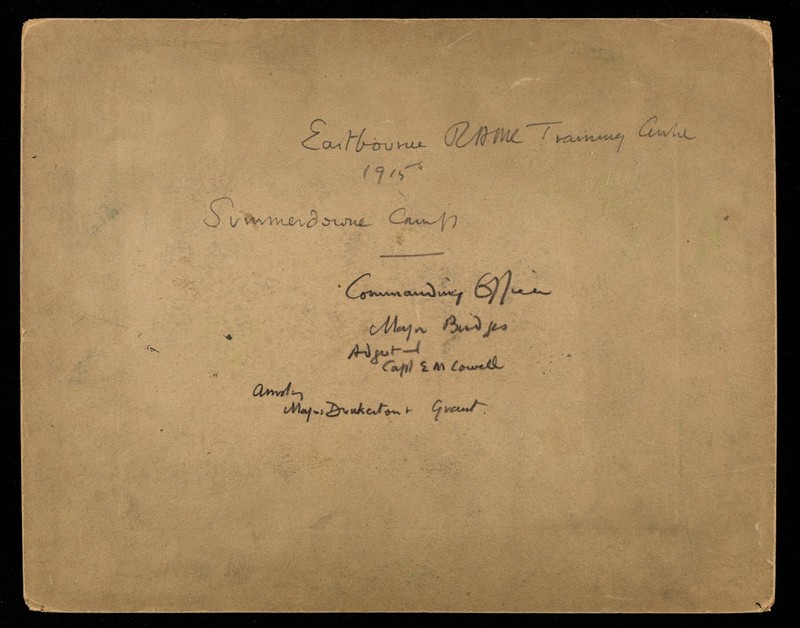 Eastbourne RAMC Training Centre
1915
Summerdowne Camp
Commanding Officer
Major Bridges
Adjut
Capt E M Cowell
Major Grant.